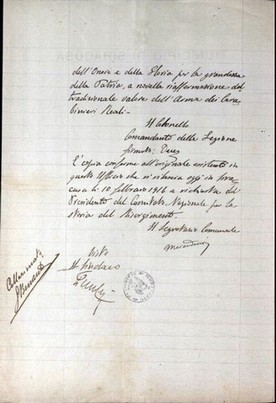 dell'Onore e della Gloria per la grandezza
della Patria, a novella riaffermazione del
tradizionale valore dell'Arma dei Cara
binieri Reali-
Il Colonnello
Comandante della Legione
firmato:
È copia conforme all'originale esistente in
questo Ufficio che si rilascia oggi in
casa li 10 febbraio 1916 a richiesta del
Presidente del Comitato Nazionale per la
storia del Risorgimento
Il Segretario Comunale
Visto
Il Sindaco